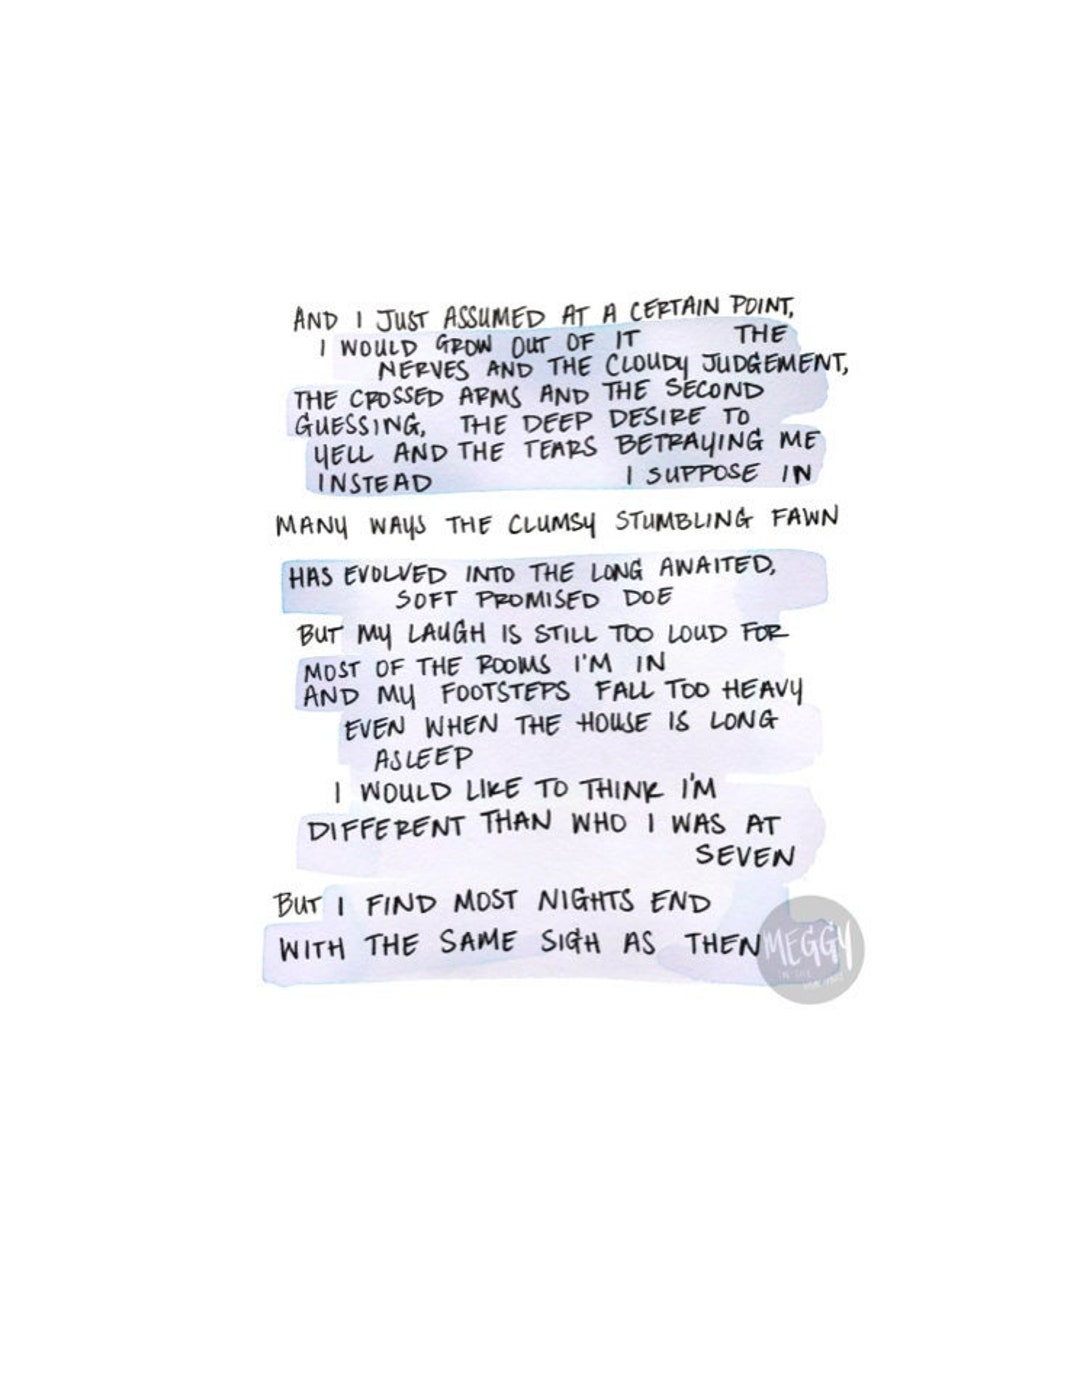 AND I JUST ASSUMED AT A CERTAIN POINT,
I WOULD GROW OUT OF IT THE
NERVES AND THE CLOUDY JUDGEMENT,
THE CROSSED ARMS AND THE SECOND
GUESSING, THE DEEP DESIRE TO
YELL AND THE TEARS BETRAYING ME
INSTEAD I SUPPOSE IN
MANY WAYS THE CLUMSY STUMBLING FAWN
HAS EVOLVED INTO THE LONG AWAITED,
SOFT PROMISED DOE
BUT MY LAUGH IS STILL TOO LOUD FOR
MOST OF THE ROOMS I'M IN
AND MY FOOTSTEPS FALL TOO HEAVY
EVEN WHEN THE HOUSE IS LONG
ASLEEP
I WOULD LIKE TO THINK I'M
DIFFERENT THAN WHO I WAS AT
SEVEN
BUT I FIND MOST NIGHTS END
WITH THE SAME SIGH AS THEN
MEGGY
IN THE